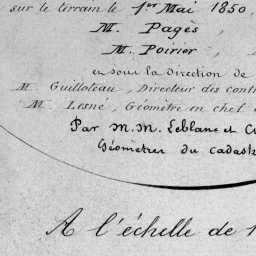 sur le terrain le 1er Mai 1850,
M. Pagès
M. Poirier,
et sous la direction de
M. Guilloteau, Directeur des cont
M. Lesné, Géomètre en chef
Par M.M. Leblanc et C
Géomètres du cadast
A l'échelle de 1